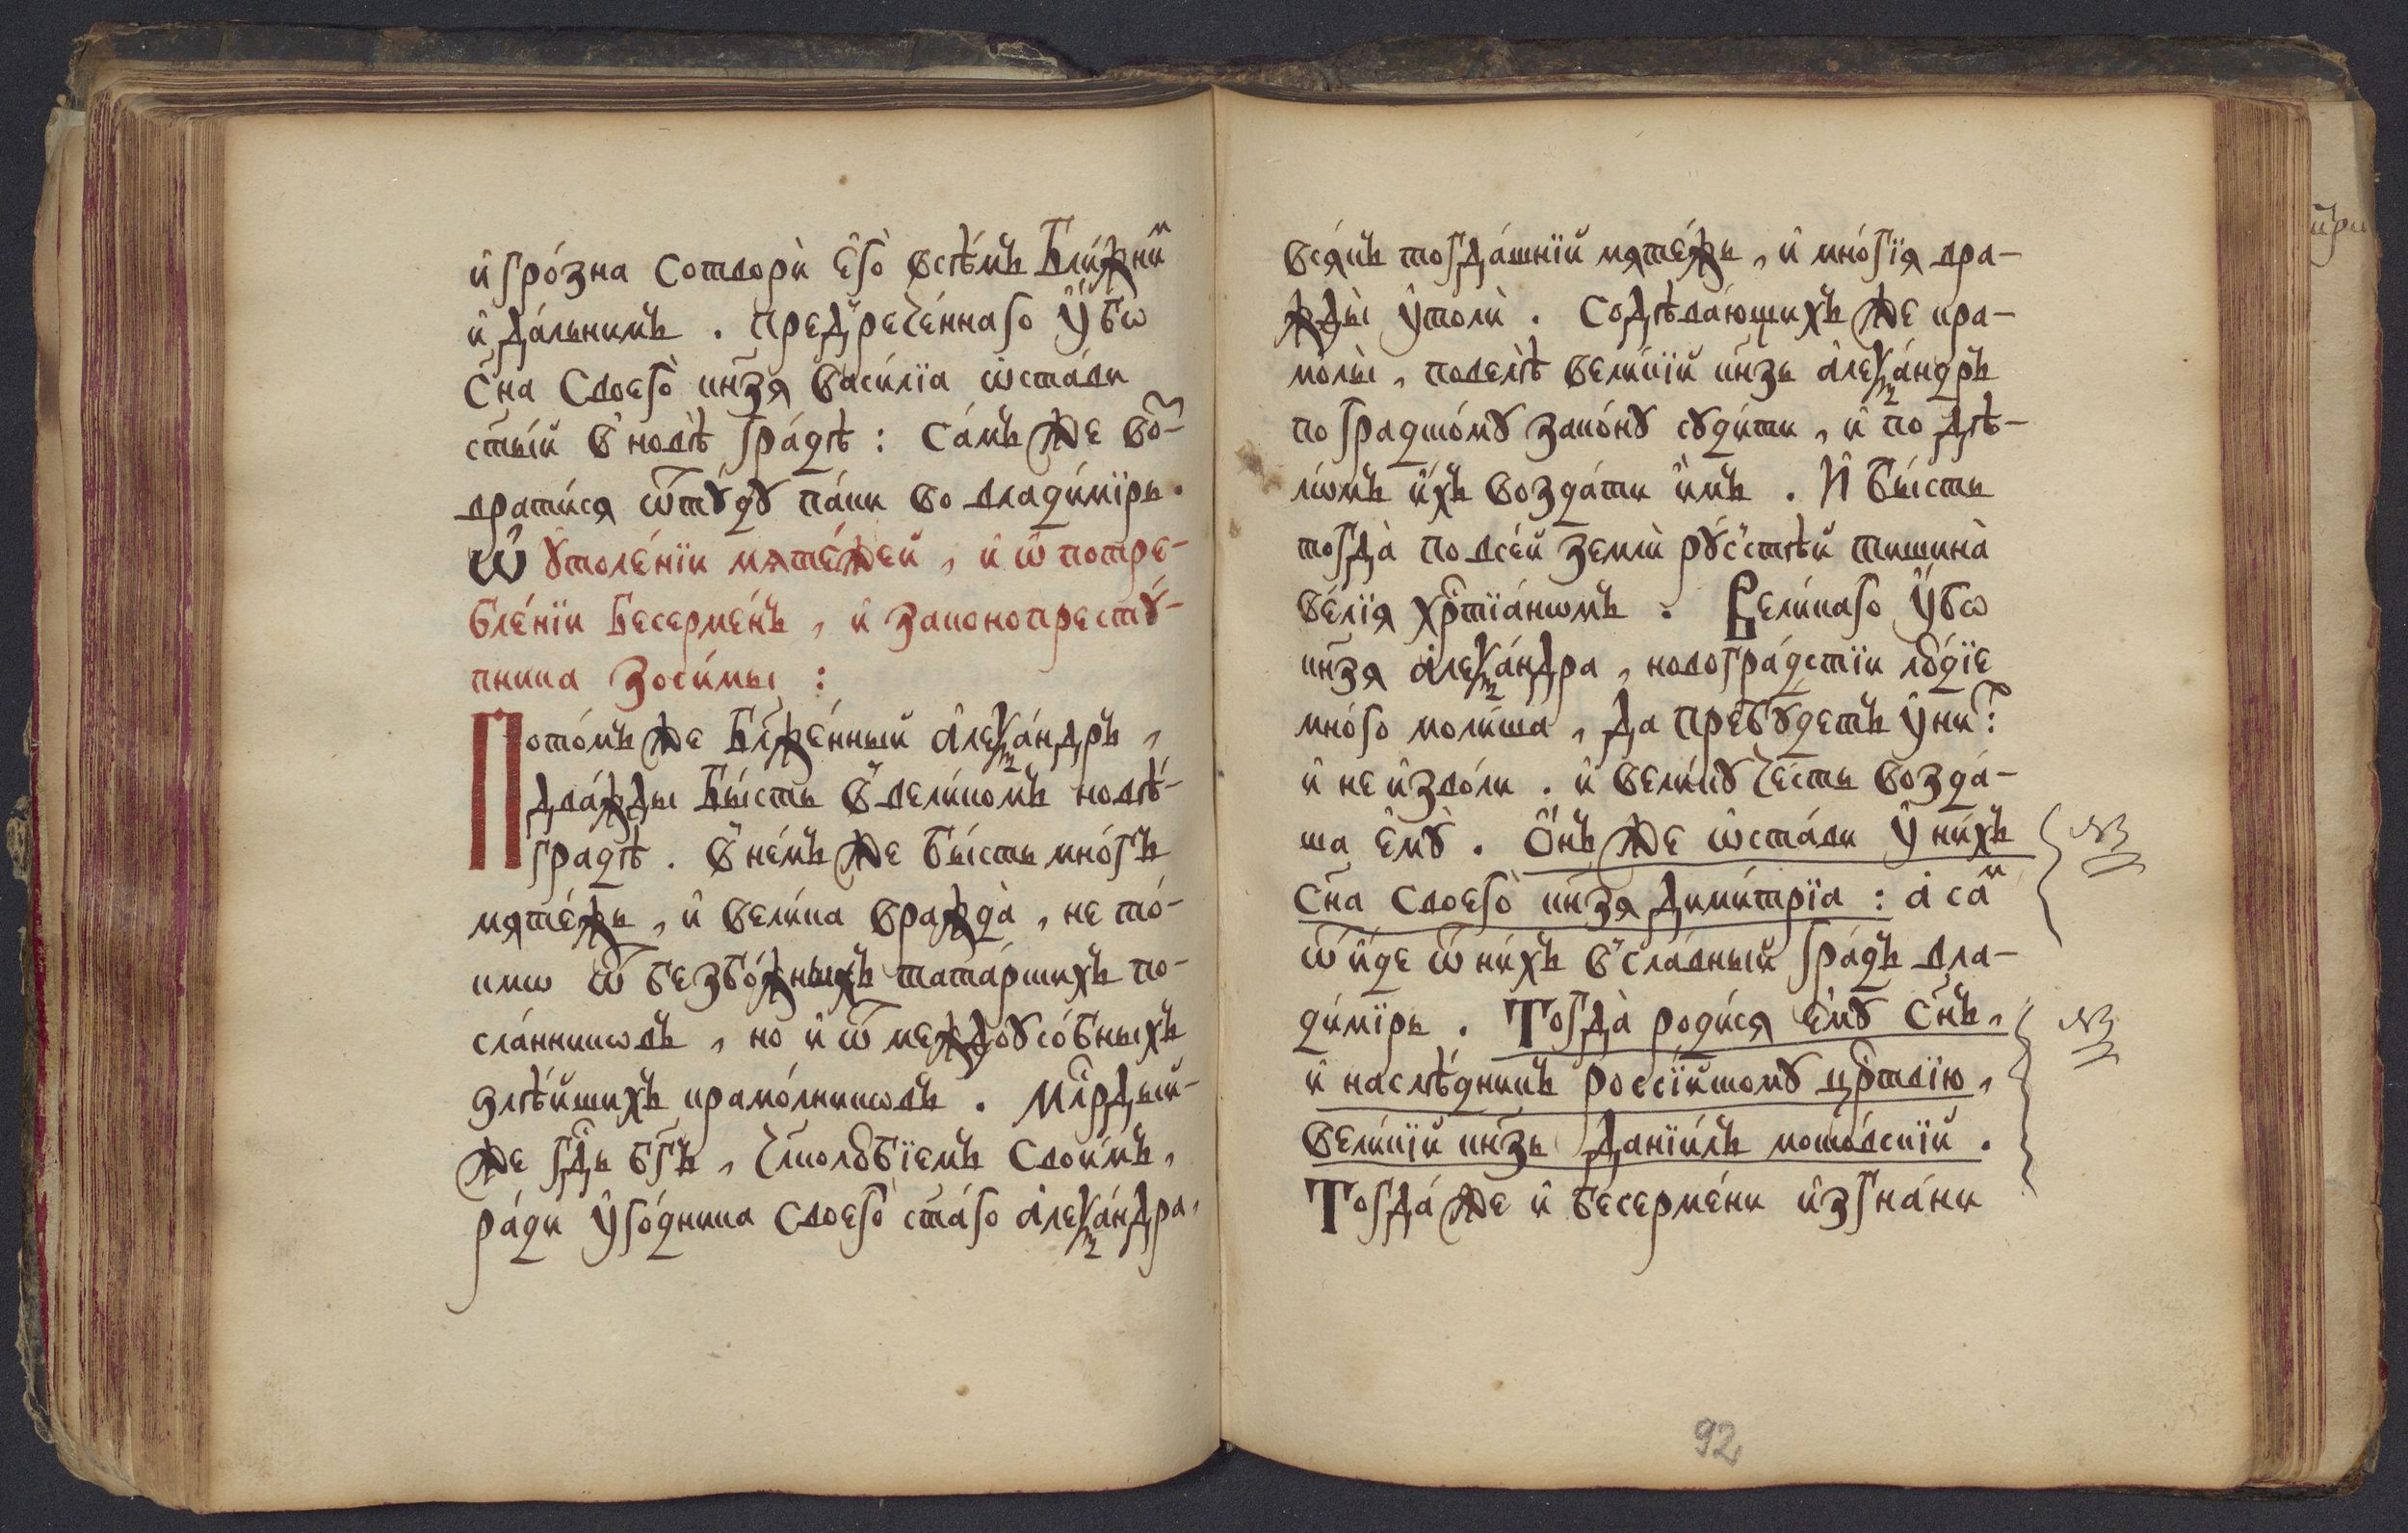 и̂ гро́зна сотворѝ є̂го̀ всѣ́мъ бли́жниⷨ
и̂ да́льнимъ . предърече́ннаго ᲂу̂бѡ
сн҃а своего̀ кн҃зя васи́лїа ѡ̂ста́ви
ст҃ый в̾ новѣ гра́дѣ : са́мъ же воⷥ-
врати́ся ѿтꙋ́дꙋ па́ки во влади́мїръ .
Ѡ̂ ꙋ̂толе́нїи мяте́жей , и̂ ѡ̂ потре-
бле́нїи бесерме́нъ , и̂ законопрестꙋ́-
пника зоси́мы :
Пото́мъ же бл҃же́нный а̂леѯа́ндръ ,
два́жды бы́сть в̾ вели́комъ новѣ́-
градѣ . в̾ не́мъ же бы́сть мно́гъ
мяте́жъ , и̂ вели́ка вражда̀ , не то́-
кмѡ ѿ безбо́жныхъ тата́рскихъ по-
сла́нникѡвъ , но и̂ ѿ междоꙋсо́бныхъ
злѣ́йшихъ крамо́лникѡвъ . Млⷭ҇рдый-
же гдⷭ҇ь бг҃ъ , чл҃колю́бїемъ свои́мъ ,
ра́ди ᲂу̂го́дника своего̀ ст҃а́го а̂леѯа́ндра ,
вся́къ тогда́шнїй мяте́жъ , и̂ мно́гїя вра-
жды̀ ᲂу̂толѝ . содѣва́ющихъ же кра-
мо́лы , повелѣ̀ вели́кїй кн҃зь а̂леѯа́ндръ
по градско́мꙋ зако́нꙋ сꙋди́ти , и̂ по дѣ-
лѡ́мъ и̂́хъ возда́ти и̂̀мъ . И̂ бы́сть
тогда̀ по все́й землѝ рꙋ́с̾стѣй тишина̀
ве́лїя хрⷭ҇тїа́нѡмъ . Вели́каго ᲂу̂бѡ
кн҃зя а̂леѯа́ндра , новогра́дстїи лю́дїе
мно́го моли́ша , да пребꙋ́детъ ᲂу̂ ниⷯ :
и̂ не и̂зво́ли . и̂ вели́кꙋ че́сть возда́-
ша є̂мꙋ̀ . О̂́нъ же ѡ̂ста́ви ᲂу̂ ни́хъ
сн҃а своего̀ кн҃зя дими́трїа : а̂ саⷨ
ѿи́де ѿ ни́хъ в̾ сла́вный гра́дъ вла-
ди́мїръ . Тогда̀ роди́ся є̂мꙋ̀ сн҃ъ ,
и̂ наслѣ́дникъ россі́йскомꙋ црⷭ҇твїю ,
вели́кїй кн҃зь данїи́лъ моско́вскїй .
Тогда́ же и̂ бесерме́ни и̂згна́ни
NB
NB
92